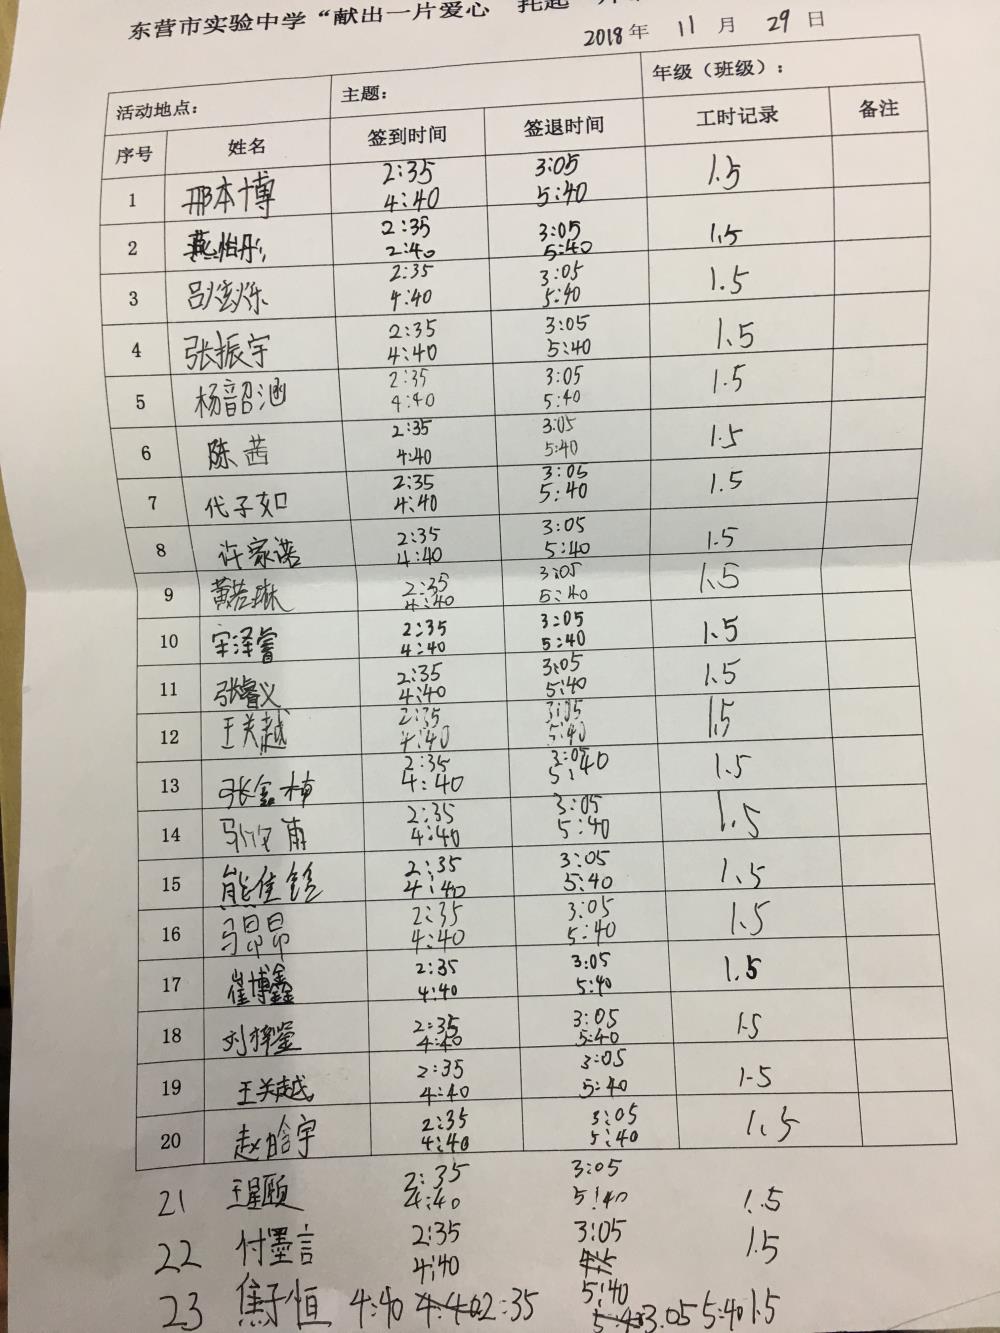 东营市实验中学“献出一片爱心 托起一片
2018年 11月 29日
活动地点： 主题： 年级（班级）：
序号 姓名 签到时间 签退时间 工时记录 备注
1 邢本博 2:35 3:05 1.5
4:40 5:40
2 燕怡彤 2:35 3:05 1.5
2:40 5:40
3 吕 2:35 3:05 1.5
4:40 5:40
4 张振宇 2:35 3:05 1.5
4:40 5:40
5 杨韶涵 2:35 3:05 1.5
4:40 5:40
6 陈茜 2:35 3:05 1.5
4:40 5:40
7 代子如 2:35 3:05 1.5
4:40 5:40
8 许家诺 2:35 3:05 1.5
4:40 5:40
9 黄若琳 2:35 3:05 1.5
4:40 5:40
10 宋泽睿 2:35 3:05 1.5
4:40 5:40
11 张睿义 2:35 3:05 1.5
4:40 5:40
12 王关越 2:35 3:05 1.5
4:40 5:40
13 张鑫楠 2:35 3:05 1.5
4:40 5:40
14 马 2:35 3:05 1.5
4:40 5:40
15 熊佳 2:35 3:05 1.5
4:40 5:40
16 马昂昂 2:35 3:05 1.5
4:40 5:40
17 崔博鑫 2:35 3:05 1.5
4:40 5:40
18 刘梓 2:35 3:05 1.5
4:40 5:40
19 王关越 2:35 3:05 1.5
4:40 5:40
20 赵晗宇 2:35 3:05 1.5
4:40 5:40
21 王星颐 2:35 3:05 1.5
4:40 5:40
22 付墨言 2:35 3:05 1.5
4:40 5:40
23 焦子恒 4:40 2:35 3:05 5:40 1.5